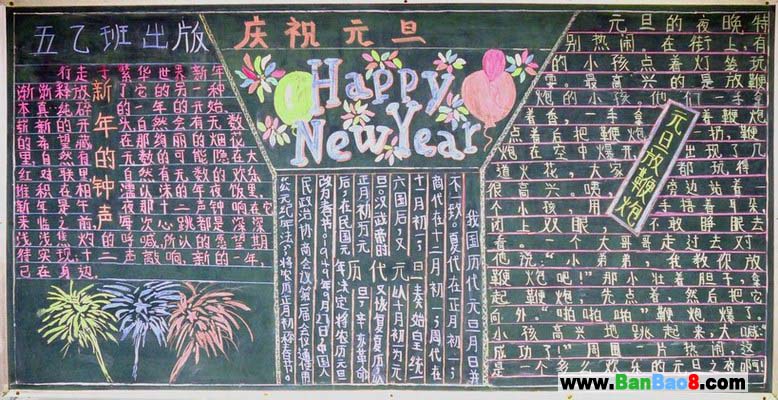 五乙班出版
庆祝元旦
Happy
New Year
新年的钟声
行走于繁华世界新年
渐渐释放了它的另一种
本真纯碎的一年的开始
崭新的元头自然会有无数
的希望藏在那绚丽的烟花
里自然有无数的可能隐在大
红对联上自然有无数的欢乐
堆积在相濡以沫的年夜饭里
新年是午夜那十二声钟响在它
来临之前每次心跳都是深深
浅浅焦灼的呼喊,所以的愿望期
待实现十二声敲响,新的一年,
已在身边.
我国历代元旦月日并
不一致。夏代在正月初一;
商代在十二月初一;周代在
十一月初一;秦始皇统一
六国后,又元以十月初一为元
旦。汉武帝时代又恢复夏历以
正月初为元 历旦,辛亥革命
后,在民国元年决定将农历元旦
改为春节。1949年9月27日中国人
民政治协商会议第一届会议通使用
"公元纪年法",将农历正月初一称春节。
元旦放鞭炮
元旦的夜晚特
别热闹,在街上,有
的小孩点着灯笼玩
耍,最高兴的是放鞭
炮的小孩。他们一手拿
着香,一手拿着鞭炮
点着后把鞭炮一扔,鞭
炮在空中爆开出现了几
道火花,大家都玩得
很高兴。咦,旁边站着一
个小孩,用手捂着耳朵,
闭上双眼,不敢睁眼去
看。一个大哥哥走过去对
他说:"小弟弟,我教你放
鞭炮吧!"那小壮着胆子,拿
起鞭炮。先点着,然后把它
向外"啪啪啪"鞭炮爆了。
小孩高兴地跳起来,大喊:
"成功了!"周围一片热闹,这
是一个多么欢乐的元旦之夜啊!
www.BanBao8.com